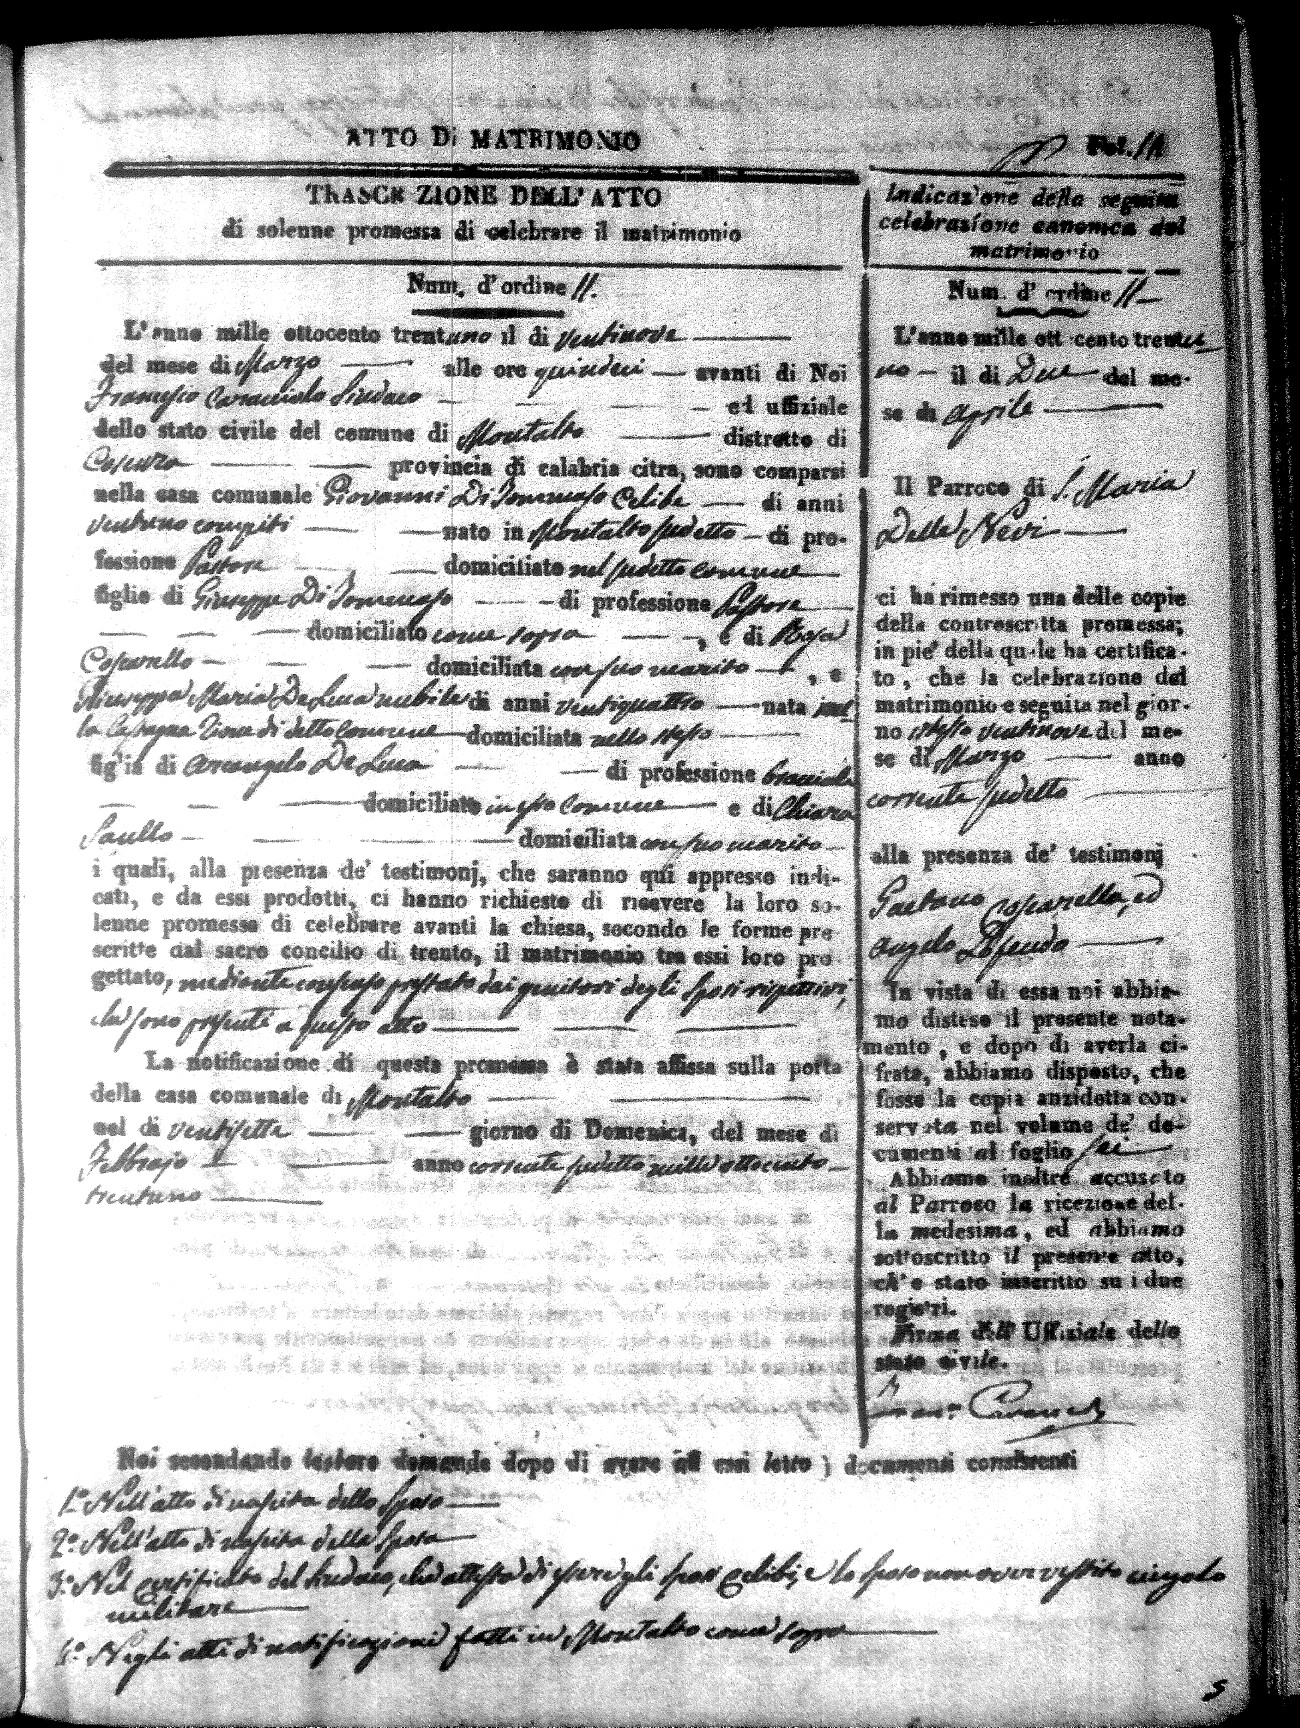 ATTO Di MATRIMONIO
Fol. 11
TRASCR ZIONE DELL' ATTO
di solenne promessa di celebrare il matrimonio
Num. d' ordine 11.
L'anno mille ottocento trentuno il di ventinove
del mese di Marzo alle ore quindici avanti di Noi
Francesco Caracciolo Sindaco ed uffiziale
dello stato civile del comune di Montalto distretto di
Cosenza provincia di calabria citra, sono comparsi
nella casa comunale Giovanni Di Tommaso Celibe di anni
ventuno compiti nato in Montalto sudetto di pro-
fessione Pastore domiciliato nel sudetto comune
figlio di Giuseppe Di Tommaso di professione Pastore
domiciliato come sopra , e di Rosa
Cosparello domiciliata con suo marito , e
Giuseppa Maria De Luca nubile di anni ventiquattro nata
di detto Comune domiciliata nello stesso
figlia di Arcangelo De Luca di professione bracciale
domiciliato in esso Comune e di Chiara
Saullo domiciliata con suo marito
i quali, alla presenza de' testimonj, che saranno qui appresso indi-
cati, e da essi prodotti, ci hanno richiesto di ricevere la loro so-
lenne promessa di celebrare avanti la chiesa, secondo le forme pre
scritte dal sacro concilio di trento, il matrimonio tra essi loro pro
gettato, mediante consenso prestato dai genitori degli Sposi rispettivi,
che sono presenti a questo atto
La notificazione di questa promessa è stata affissa sulla porta
della casa comunale di Montalto
nel di ventisette giorno di Domenica, del mese di
Febbrajo anno corrente sudetto mille ottocento
trentuno
Indicaz'one della seguita
celebrasione canonica del
matrimonio
Num. d' ordine 11
L'anno mille ott cento trentu
no il di Due del me-
se di Aprile
Il Parroco di S. Maria
Della Nevi
ci ha rimesso una delle copie
della controscritta promessa;
in pie' della quale ha certifica-
to, che la celebrazione del
matrimonio e seguita nel gior-
no stesso ventinove del me-
se di Marzo anno
corrente sudetto
alla presenza de' testimonj
Gaetano Cosparella, ed
Angelo
In vista di essa noi abbia-
mo disteso il presente nota-
mento, e dopo di averla ci-
frata, abbiamo disposto, che
fosse la copia anzidetta con-
servata nel volume de' do-
cumenti al foglio sei
Abbiamo inoltre accusato
al Parroco la ricezione del-
la medesima, ed abbiamo
sottoscritto il presente atto,
ch'e stato inscritto su i due
registri.
Firma dell' Uffiziale dello
stato civile.
Noi secondando le loro domande dopo di avere ad essi letto i documenti consistenti
1.º Nell'atto di nascita dello Sposo
2.º Nell'atto di nascita della Sposa
3.º Nel certificato del Sindaco, che attesta di essere gli sposi celibi, e lo sposo non aver vestito cingolo
militare
4.º Negli atti di notificazioni fatti in Montalto come sopra
5